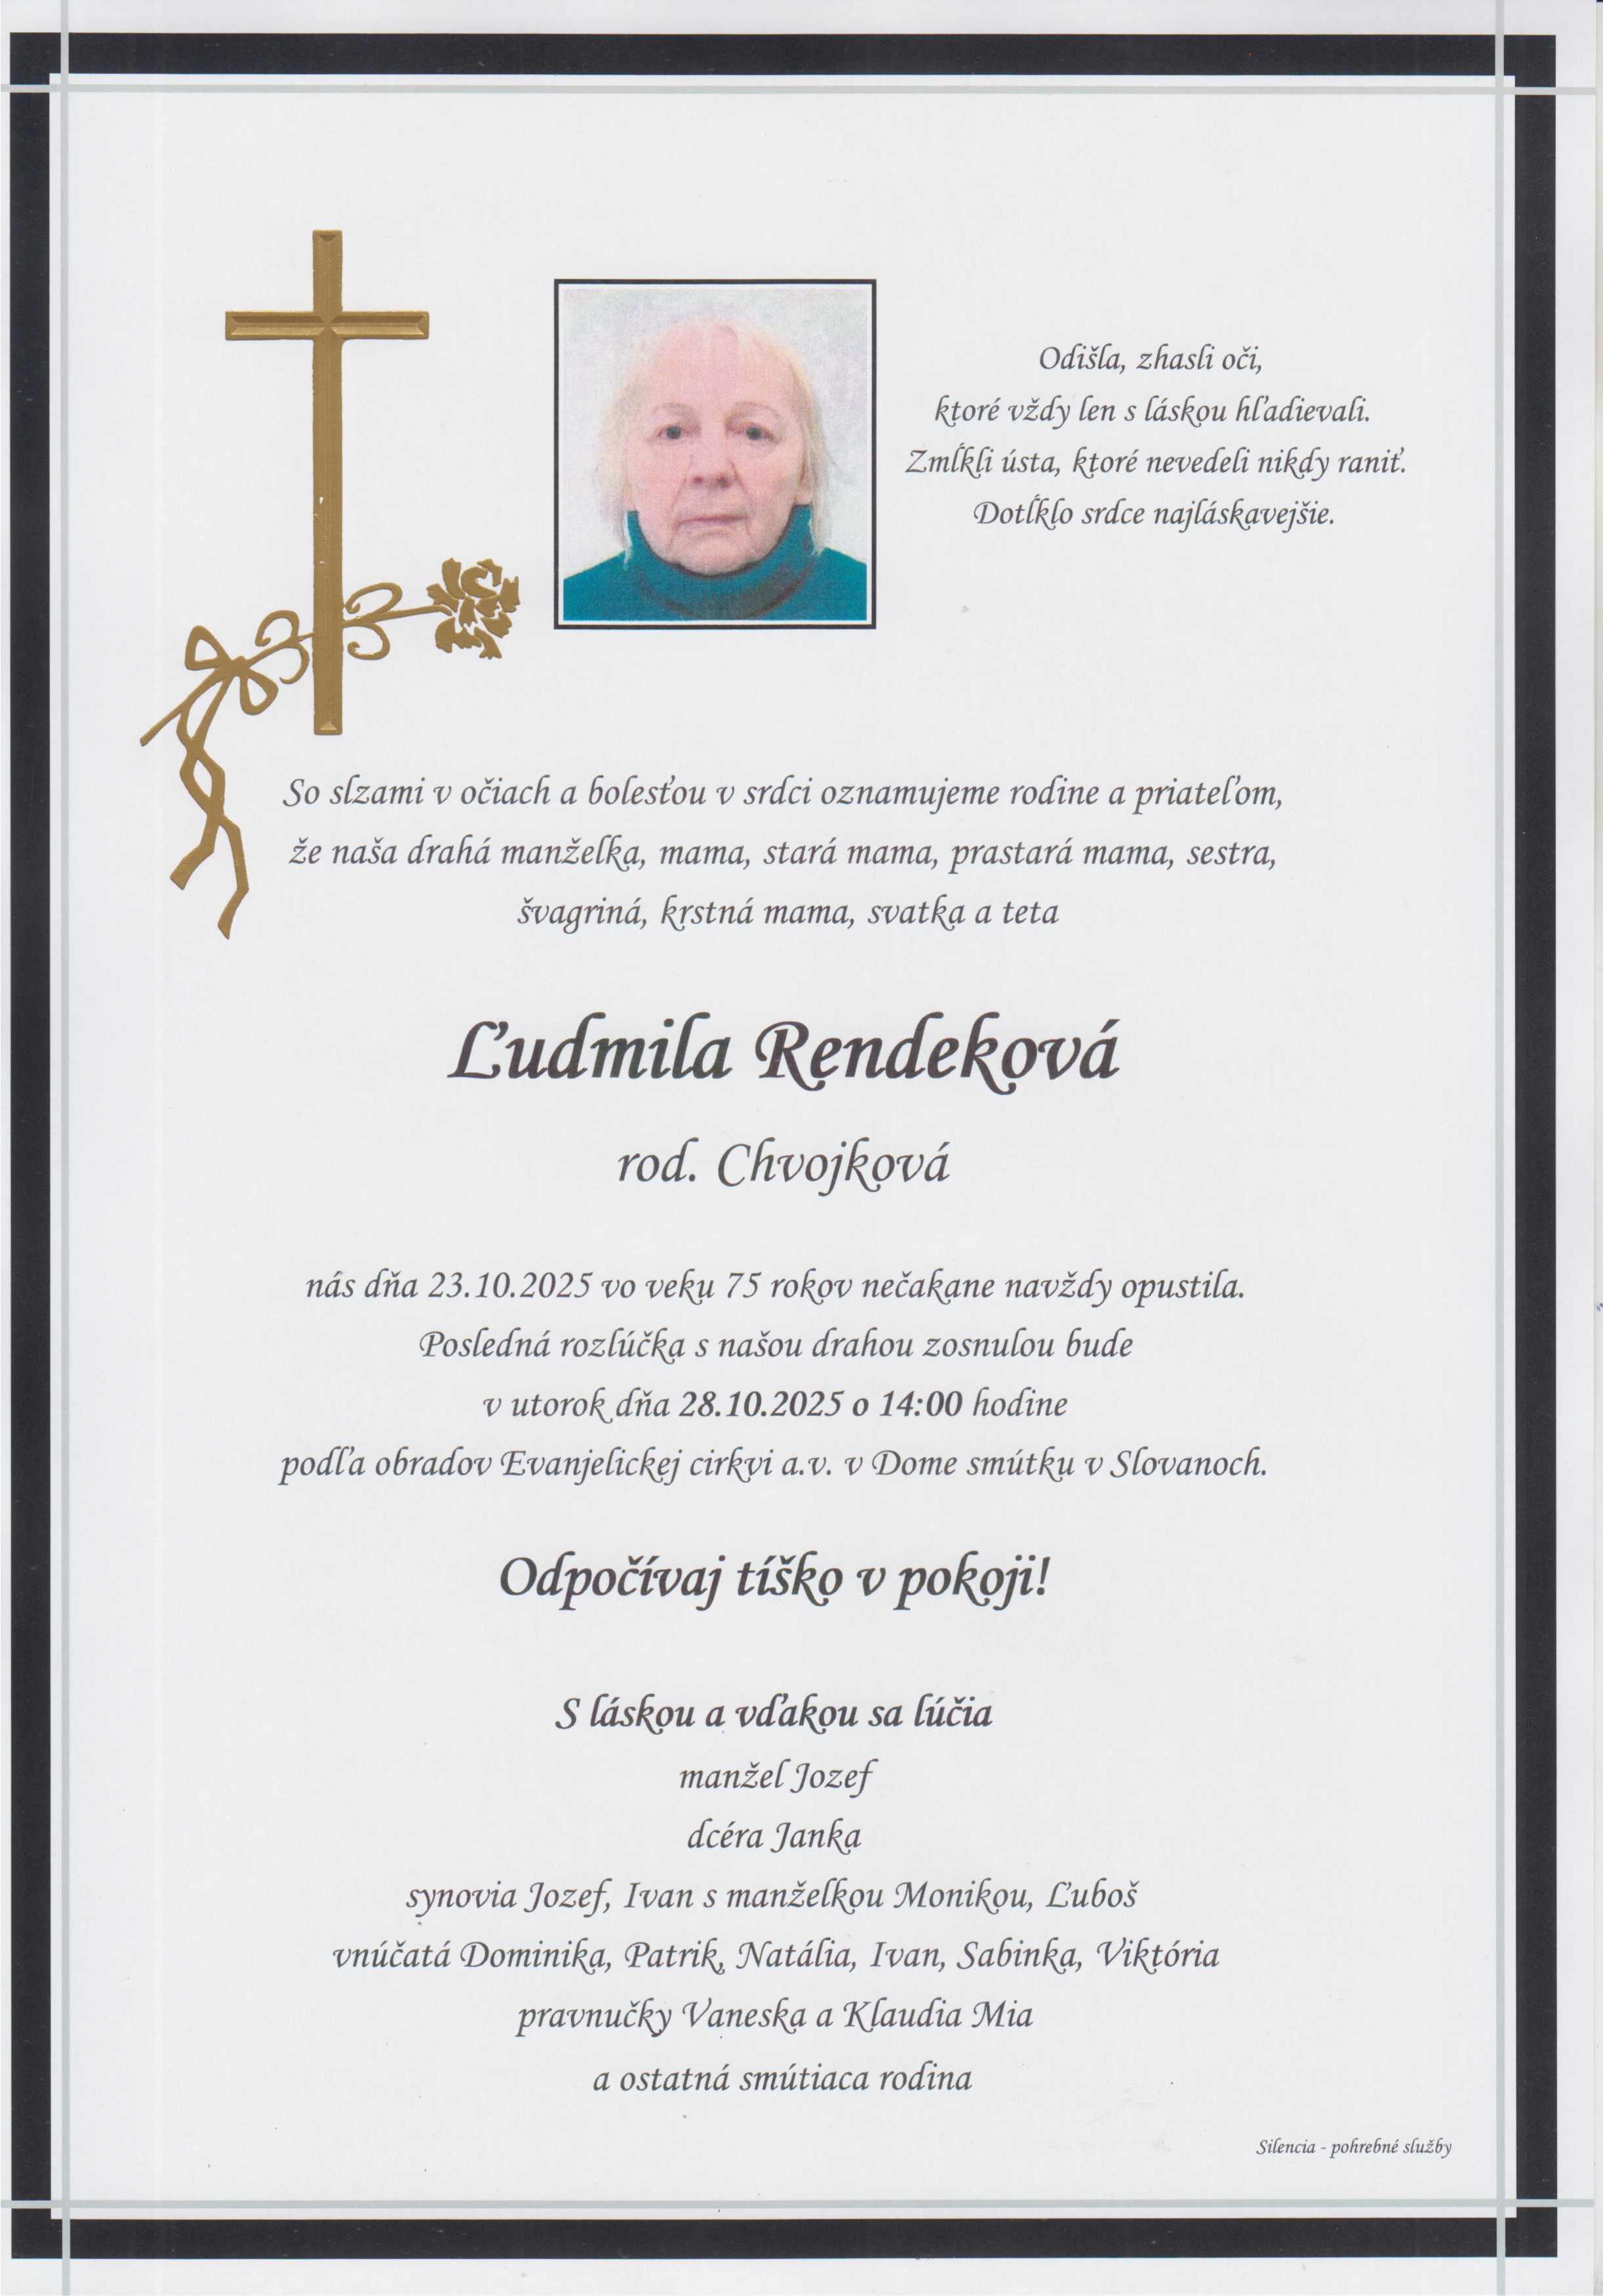 Odišla, zhasli oči,
ktoré vždy len s láskou hľadievali.
Zmĺkli ústa, ktoré nevedeli nikdy raniť.
Dotĺklo srdce najláskavejšie.
So slzami v očiach a bolesťou v srdci oznamujeme rodine a priateľom,
že naša drahá manželka, mama, stará mama, prastará mama, sestra,
švagriná, krstná mama, svatka a teta
Ľudmila Rendeková
rod. Chvojková
nás dňa 23.10.2025 vo veku 75 rokov nečakane navždy opustila.
Posledná rozlúčka s našou drahou zosnulou bude
v utorok dňa 28.10.2025 o 14:00 hodine
podľa obradov Evanjelickej cirkvi a.v. v Dome smútku v Slovanoch.
Odpočívaj tíško v pokoji!
S láskou a vďakou sa lúčia
manžel Jozef
dcéra Janka
synovia Jozef, Ivan s manželkou Monikou, Ľuboš
vnúčatá Dominika, Patrik, Natália, Ivan, Sabinka, Viktória
pravnučky Vaneska a Klaudia Mia
a ostatná smútiaca rodina
Silencia - pohrebné služby